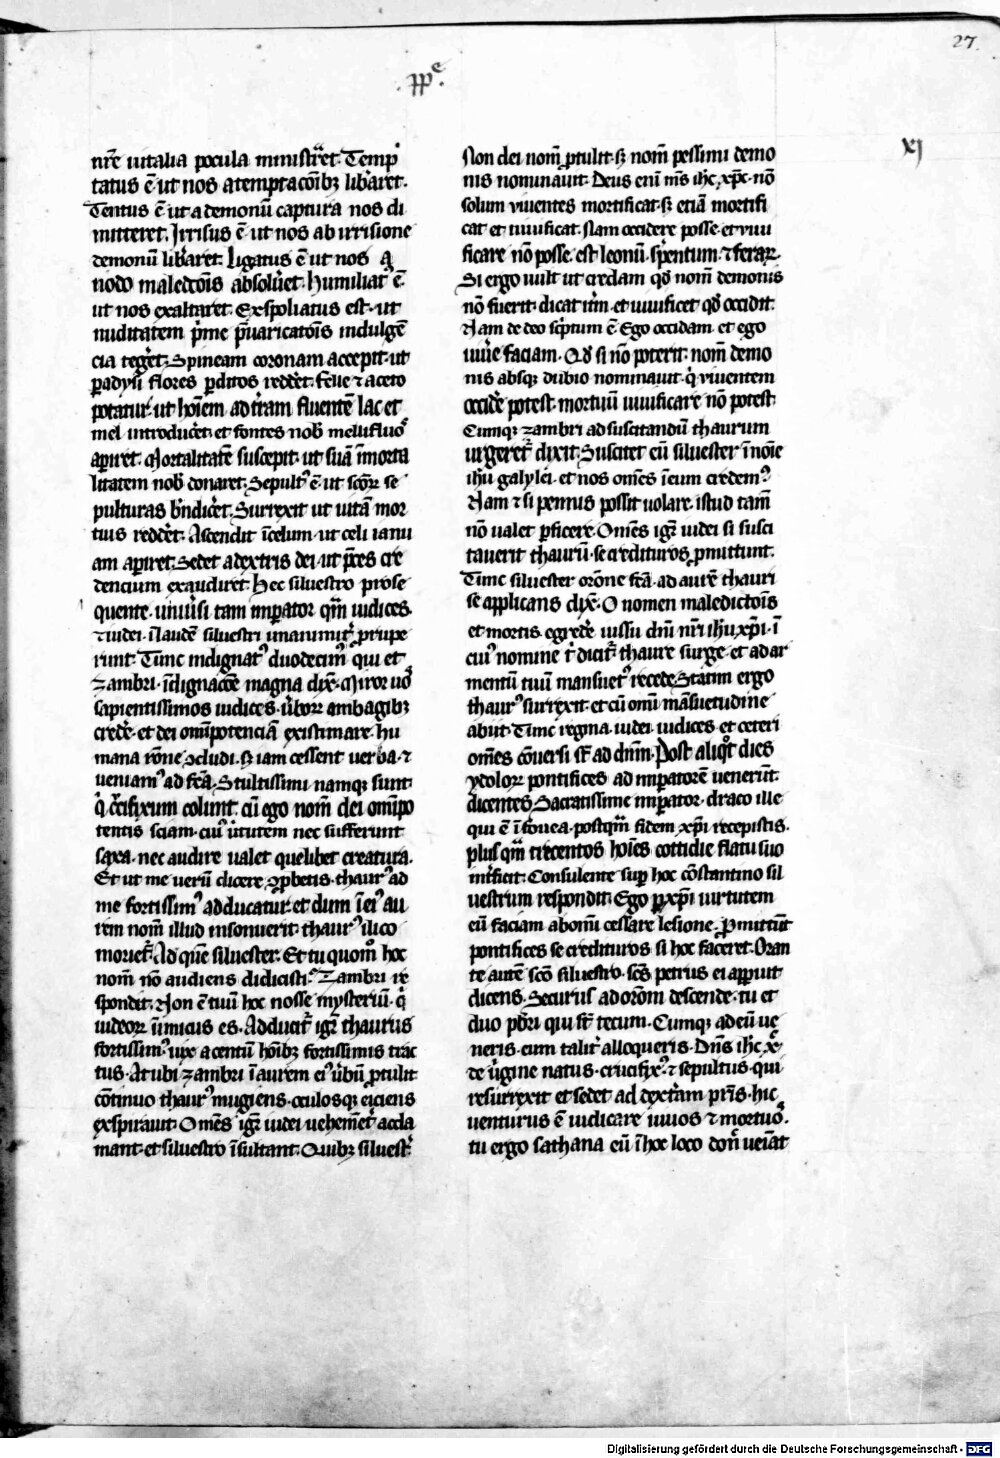 27
.ppͤ.
xj
nr̄e vitalia pocula ministͣret. Temp
tatus ē ut nos a temptacōibꝫ lib̄aret.
Tentus ē ut a demonū captura nos di
mitteret. Irrisus ē ut nos ab irrisione
demonū lib̄aret. Ligatus ē ut nos a
nodo maledcōis absolu̅et. Humiliatꝰ ē
ut nos exaltaret. Exspoliatus est. ut
nuditatem p̄me p̄uaricatōis indulgē
cia teg̅et. Spineam coronam accepit. ut
ꝑadysi flores ꝑditos redd̅et. felle ⁊ aceto
potatur. ut hoīem ad t̄ram fluentē lac et
mel introduc̅et. et fontes nob̄ mellifluoꝰ
aꝑiret. Mortalitatē suscepit. ut suā īmorta
litatem nob̄ donaret. Sepultꝰ ē ut sc̄oꝝ se
pulturas bn̄dic̅et. Surrexit ut vitā mor
tuis redd̅et. Ascendit ī celum. ut celi ianu
am aꝑiret. Sedet a dextris dei. ut p̄ces cre
dencium exaudiret. Hec siluestro prose
quente. uniu̅si tam imꝑator qm̄ iudices.
⁊ iudei. ī laudē siluestri unanimit̄ ꝓrupe
runt. Tunc indignatꝰ duodecimꝰ qui et
Zambri. īdignacōe magna dix̄. Miror uoˢ
sapientissimos iudices. v̄boꝝ ambagibꝫ
cred̅e. et dei omīpotenciā existimare. hu
mana rōne ꝯcludi. Sꝫ iam cessent uerba. ⁊
ueniamꝰ ad fc̄a. Stultissimi namqꝫ sunt.
q̄ cͥcifixum colunt. cū ego nom̄ dei omīpo
tentis sciam. cuiꝰ ūtutem nec sufferunt
saxa. nec audire ualet quelibet creatura.
Et ut me uerū dicere ꝯꝓbetis. thaurꝰ ad
me fortissimꝰ adducatur. et dum ī eiꝰ au
rem nom̄ illud insonuerit. thaurꝰ ilico
moriet̄. Ad quē siluester. Et tu quomͦ hoc
nom̄ nō audiens didicisti. Zambri re
spondit. Non ē tuū hoc nosse mysteriū. q̄
iudeoꝝ īimicus es. Adducit̄ igͥ thaurus
fortissimꝰ. uix a centū hōibꝫ fortissimis trac
tus. At ubi Zambri ī aurem eiꝰ v̄bū ꝓtulit
cōtinuo thaurꝰ mugiens. oculosqꝫ eiciens
exspirauit. Om̄es igͥ iudei uehem̄et̄ accla
mant. et siluestro īsultant. Quibꝫ siluest̄.
Non dei nom̄ ꝓtulit. sꝫ nom̄ pessimi demo
nis nominauit. Deus enī m̄s ih̄c xp̄c. nō
solum viuentes mortificat. sꝫ etiā mortifi
cat et uiuificat. Nam occidere posse. et viui
ficare nō posse. est leonū. sp̄entum. ⁊ feraꝝ.
Si ergo uult ut credam qd̄ nom̄ demonis
nō fuerit. dicat it̄m. et uiuificet qd̄ occidit.
Nam de deo sc̄ptum ē Ego occidam. et ego
uiu̅e faciam. Qd̄ si nō poterit. nom̄ demo
nis absqꝫ dubio nominauit. q̄ viuentem
occid̅e potest. mortuū uiuificare nō potest.
Cumqꝫ Zambri ad suscitandū thaurum
urgeret̄ dixit. Suscitet eū siluester ī noīe
ih̄u galylei. et nos om̄es ī eum credemꝰ.
Nam ⁊ si pennis possit uolare. istud tam̄
nō ualet ꝑficere. Om̄es igͥ iudei si susci
tauerit thaurū. se credituros ꝓmittunt.
Tunc siluester orōne fc̄a. ad aurē thauri
se applicans dix̄. O nomen maledictōis
et mortis. egred̅e iussu dn̄i nr̄i ih̄u xp̄i. ī
cuiꝰ nomine t̄ dicit̄. thaure surge. et ad ar
mentū tuū mansuetꝰ recede. Statim ergo
thaurꝰ surrexit. et cū omī māsuetudine
abijt. Tunc regina. iudei. iudices. et ceteri
om̄es cōuersi sūt ad dn̄m. Post aliqͦt dies
ydoloꝝ pontifices ad imꝑatorē venerūt.
dicentes. Sacratissime imꝑator. draco ille
qui ē ī fouea. postqm̄ fidem xp̄i recepistis.
plus qm̄ trecentos hoīes cottidie flatu suo
int̄ficit. Consulente suꝑ hoc cōstantino sil
uestrum respondit. Ego ꝑ xp̄i uirtutem
eū faciam ab omī cessare lesione. Ꝓmittūt
pontifices se credituros si hoc faceret. Oran
te autē sc̄o siluestro. sc̄s petrus ei apparuit
dicens. Securus ad draconē descende. tu et
duo pb̄ri qui st̄ tecum. Cumqꝫ ad eū ue
neris. eum talit̄ alloqueris. Dn̄s ih̄c x̄c
de v̄gine natus. crucifixꝰ. ⁊ sepultus. qui
resurrexit et sedet ad dext̄am pr̄is. hic
uenturus ē iudicare viuos ⁊ mortuoˢ.
tu ergo sathana eū ī hoc loco don̄ ueīat
Digitalisierung gefördert durch die Deutsche Forschungsgemeinschaft - DFG